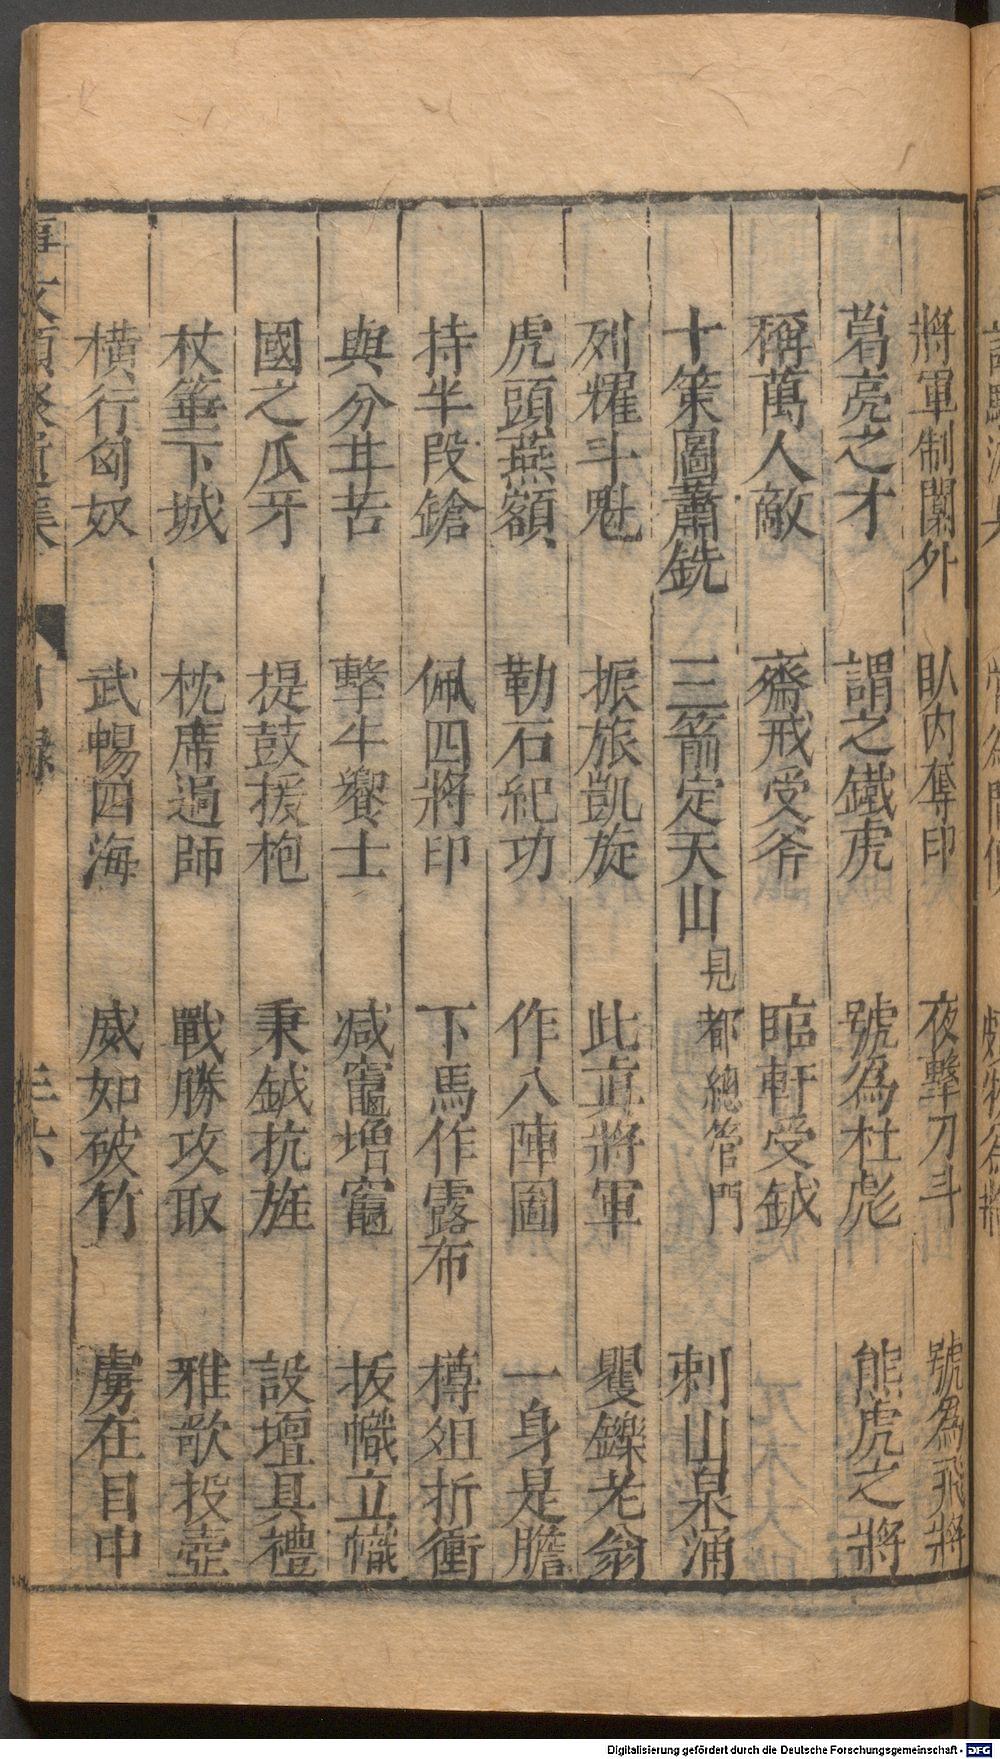 將軍制閫外　臥内奪印　夜擊刀斗　號爲飛將
葛亮之才　謂之鐵虎　號爲杜彪　熊虎之將
稱萬人敵　齋戒受斧　臨軒受鉞
十策圖蕭銑　三箭定天山　見都總管門　刺山泉涌
列耀斗魁　振旅凱旋　此真將軍　矍鑠老翁
虎頭燕額　勒石紀功　作八陣圖　一身是膽
持半段鎗　佩四將印　下馬作露布　樽俎折衝
與分甘苦　擊牛饗士　减竈增竈　拔幟立幟
國之瓜牙　提鼓援枹　秉鉞抗旌　設壇具禮
杖箠下城　枕席過師　戰勝攻取　雅歌投壺
橫行匈奴　武暢四海　威如破竹　虜在目中
目錄　三六
Digitalisierung gefördert durch die Deutsche Forschungsgemeinschaft - DFG